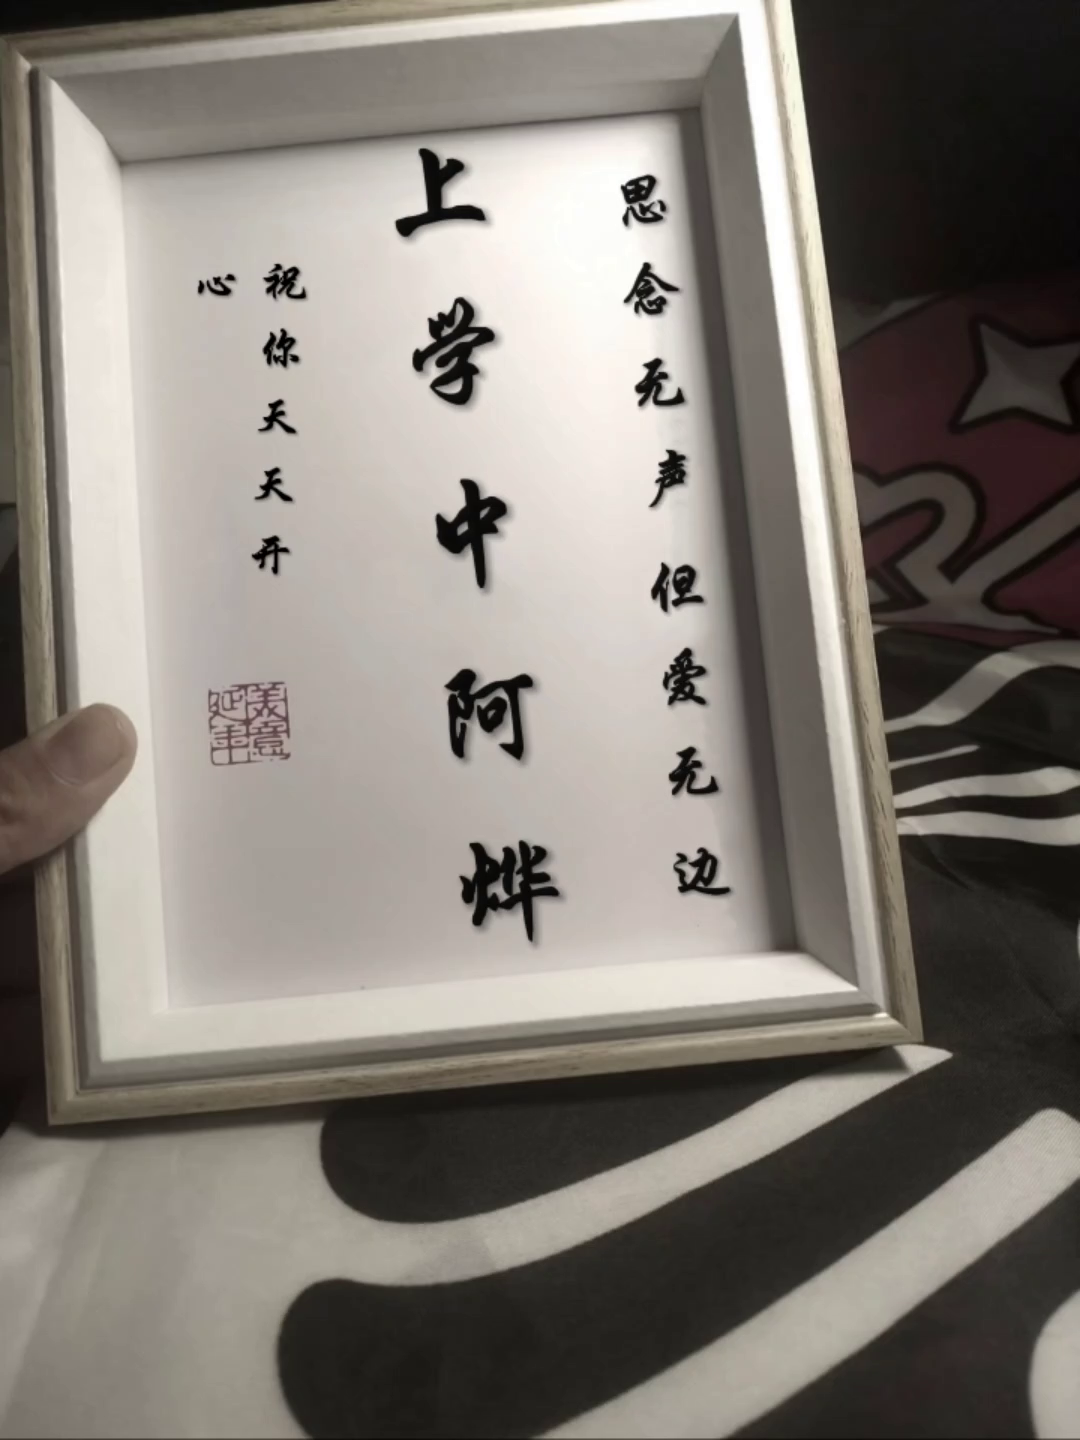 思念无声但爱无边
上学中阿烨
祝你天天开
心
美意
延年